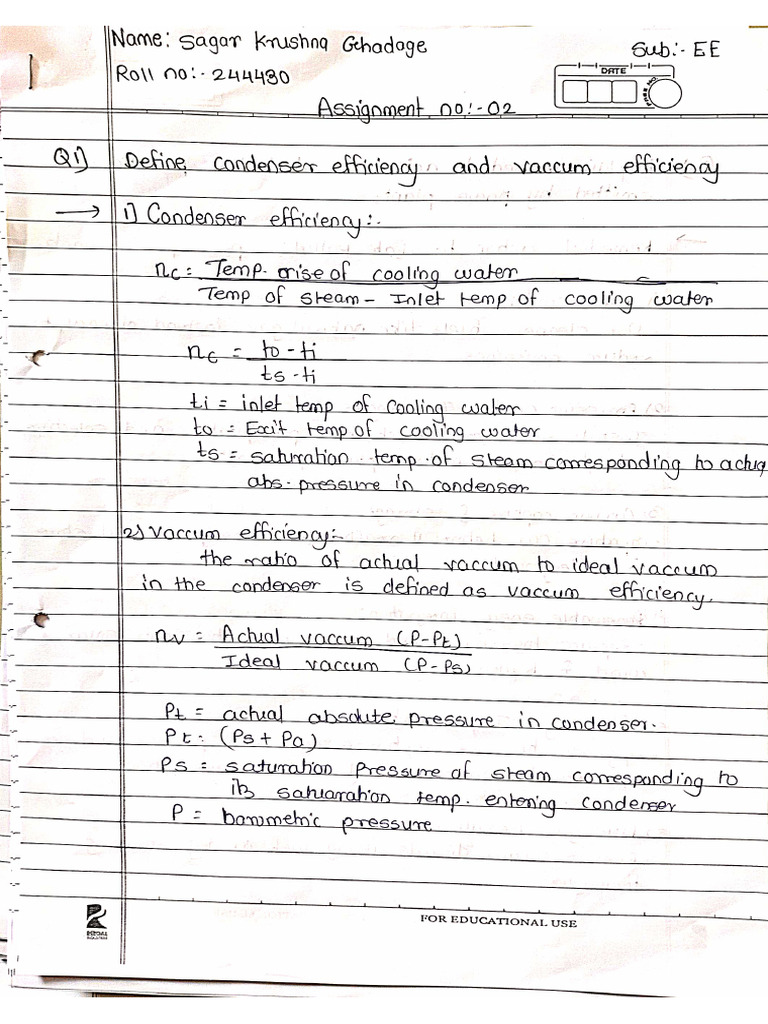 Name: Sagar Krushna Gchadage
Sub:- EE
Roll no:- 244430
DATE
Assignment no:-02
Q1) Define condenser efficiency and vaccum efficiency
→ 1) Condenser efficiency:-
nc = Temp. orise of cooling water
Temp of steam - Inlet temp of cooling water
nc = to - ti
ts - ti
ti = inlet temp of cooling water
to = Exit temp of cooling water
ts = saturation temp. of steam corresponding to actua
abs. pressure in condenser
2) Vaccum efficiency:-
the ratio of actual vaccum to ideal vaccum
in the condenser is defined as vaccum efficiency.
nv = Actual vaccum (P-Pt)
Ideal vaccum (P-Ps)
Pt = actual absolute pressure in condenser.
Pt = (Ps + Pa)
Ps = saturation pressure of steam corresponding to
its satuaration temp. entering condenser
P = barometric pressure
FOR EDUCATIONAL USE